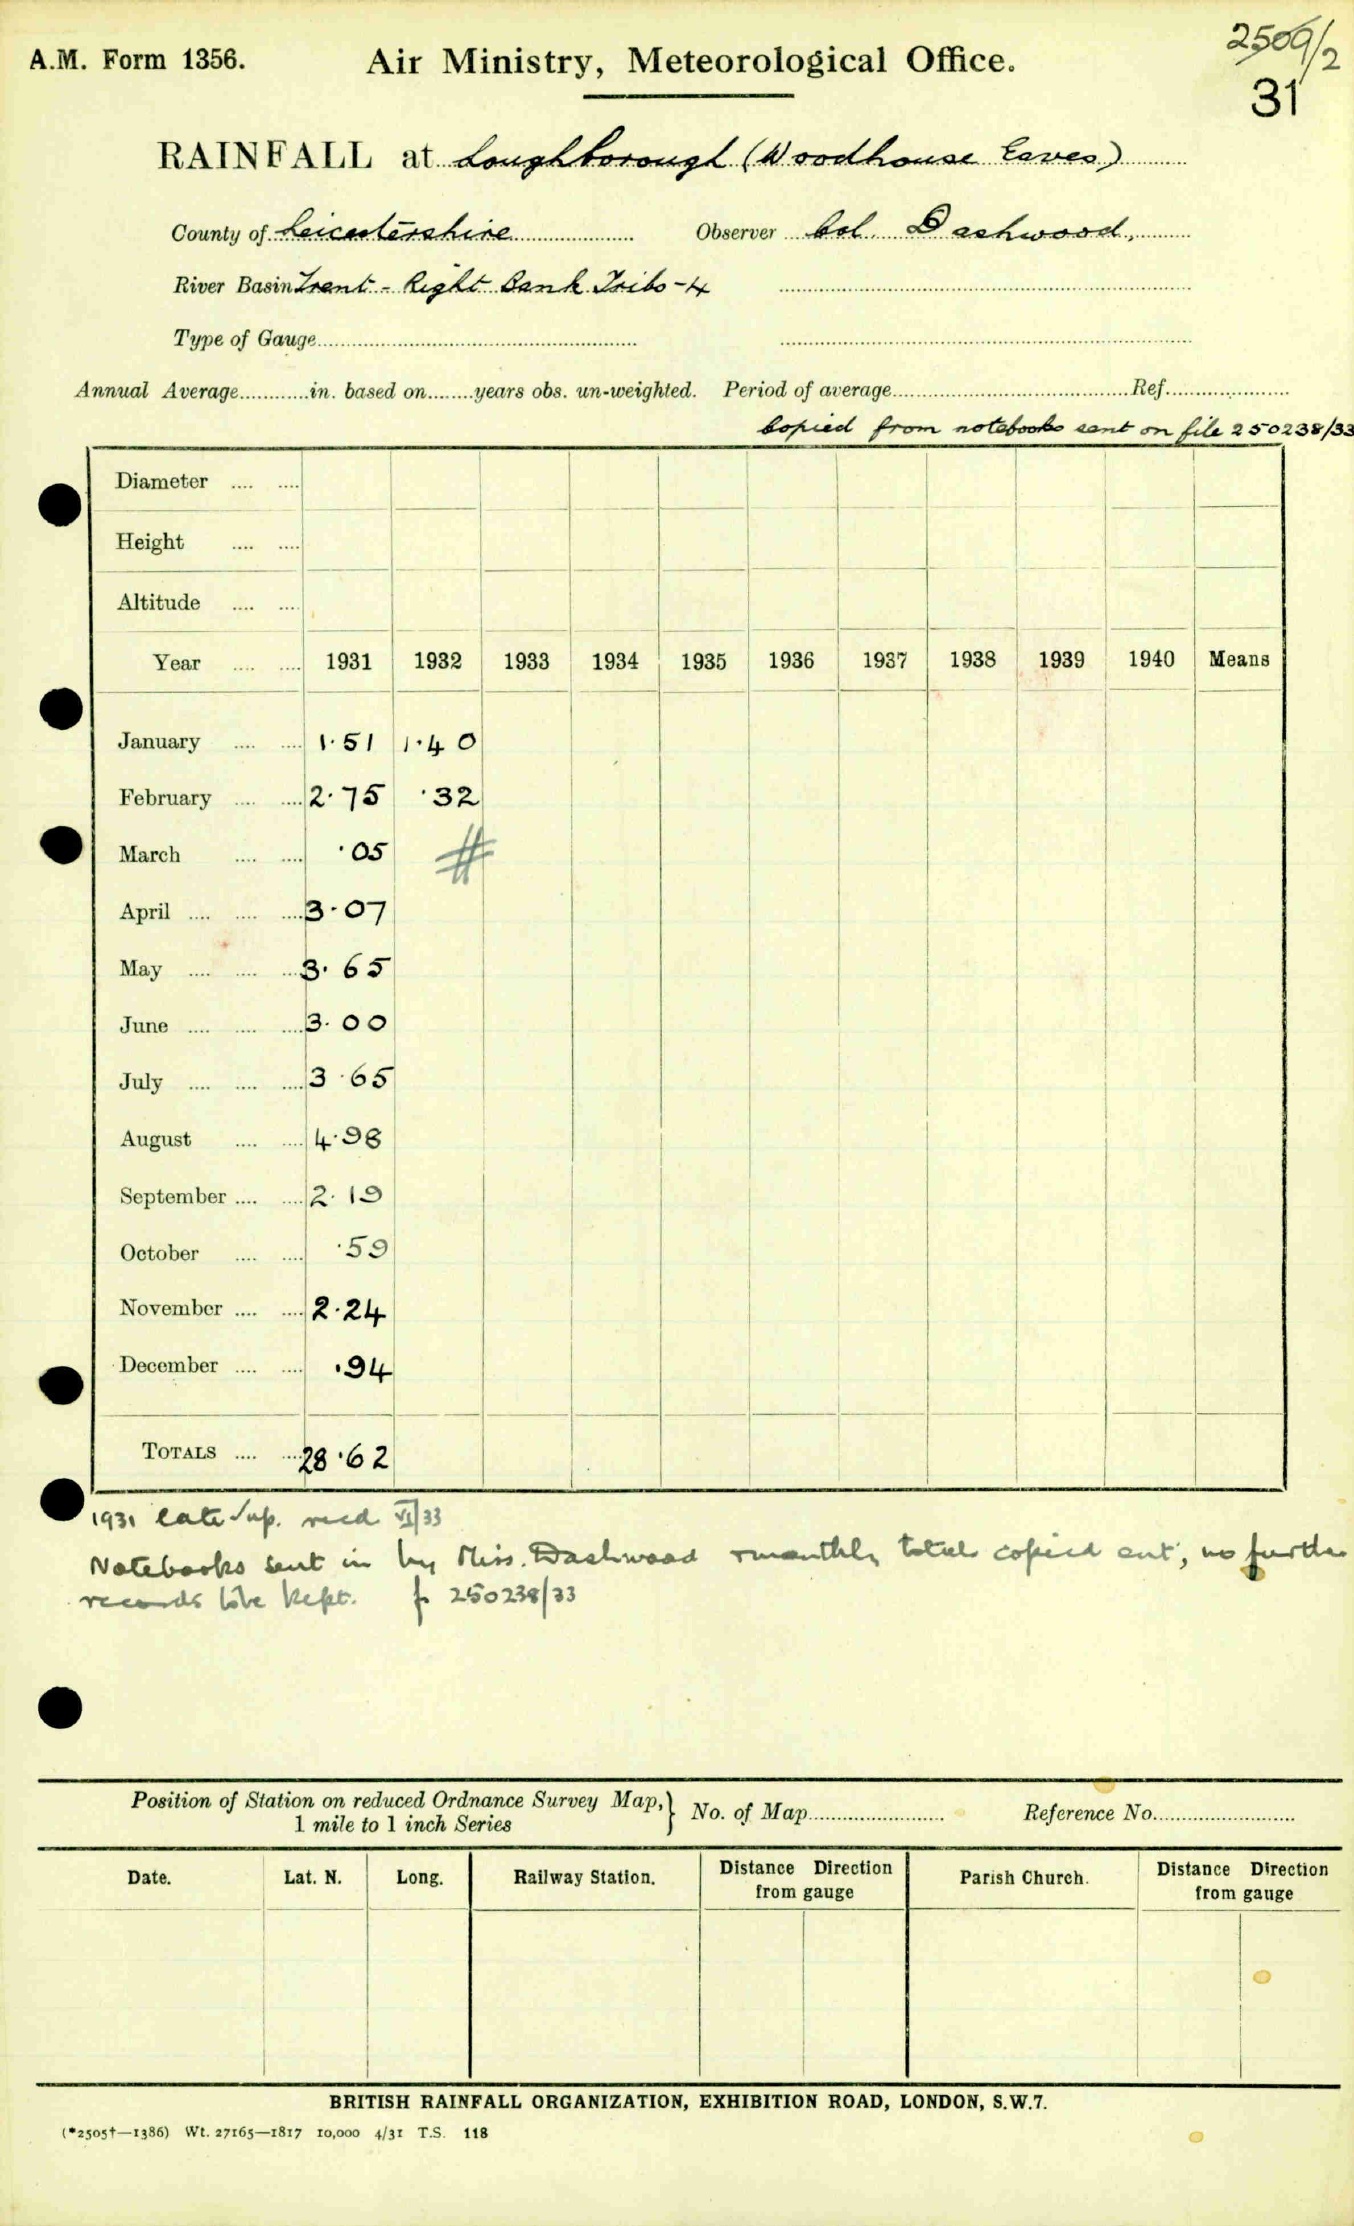 A.M. Form 1356.
Air Ministry, Meteorological Office.
2506/2
31
RAINFALL at Loughborough (Woodhouse Eaves)
County of Leicestershire Observer Col. Dashwood,
River Basin Trent - Right Bank Tribs - 4
Type of Gauge
Annual Average in. based on years obs. un-weighted. Period of average Ref.
Copied from notebooks sent on file 250238/33
Diameter
Height
Altitude
Year 1931 1932 1933 1934 1935 1936 1937 1938 1939 1940 Means
January 1.51 1.40
February 2.75 .32
March .05 #
April 3.07
May 3.65
June 3.00
July 3.65
August 4.98
September 2.19
October .59
November 2.24
December .94
TOTALS 28.62
1931 late sup. recd VI/33
Notebooks sent in by Miss. Dashwood monthly totals copied out, no further
records to be kept. f. 250238/33
Position of Station on reduced Ordnance Survey Map, } No. of Map Reference No.
1 mile to 1 inch Series
Date. Lat. N. Long. Railway Station. Distance Direction from gauge Parish Church. Distance Direction from gauge
BRITISH RAINFALL ORGANIZATION, EXHIBITION ROAD, LONDON, S.W.7.
(*2505†—1386) Wt. 27165—1817 10,000 4/31 T.S. 118